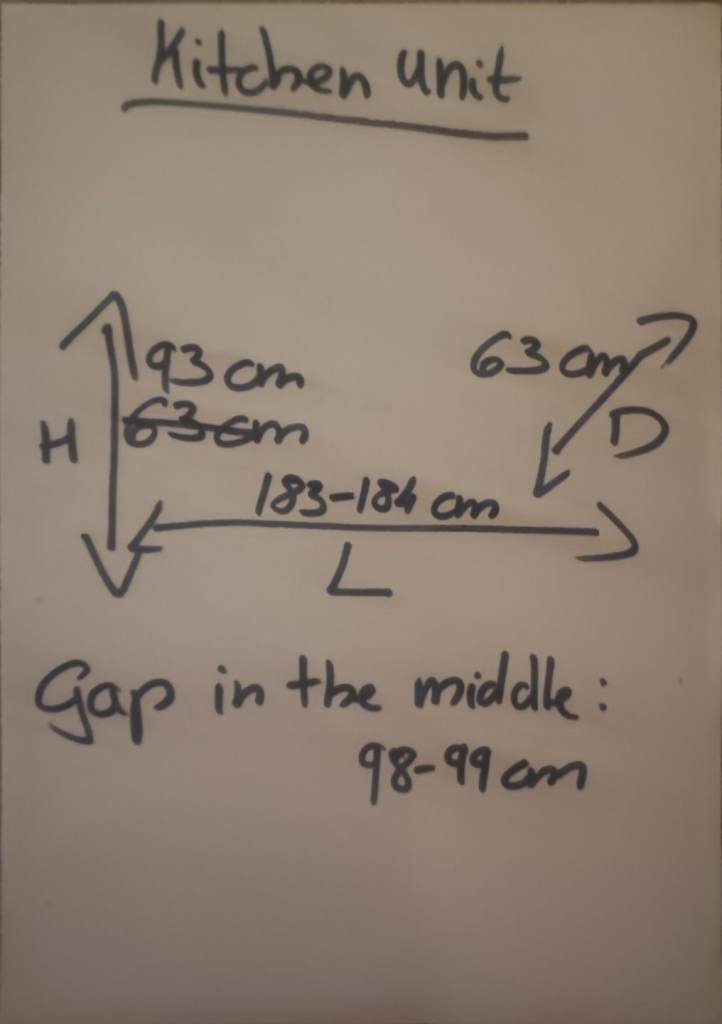 Kitchen unit
93 cm
63 cm
63 cm
H
D
183-184 cm
L
Gap in the middle:
98-99 cm